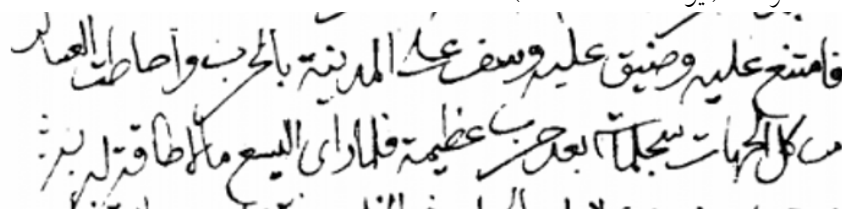 فامتنع عليه وضيق عليه وسف على المدينة بالحرب واحاطت العساكر
من كل الجهات سجلماسة بعد حرب عظيمة فلما رأى اليسع مالا طاقة له به